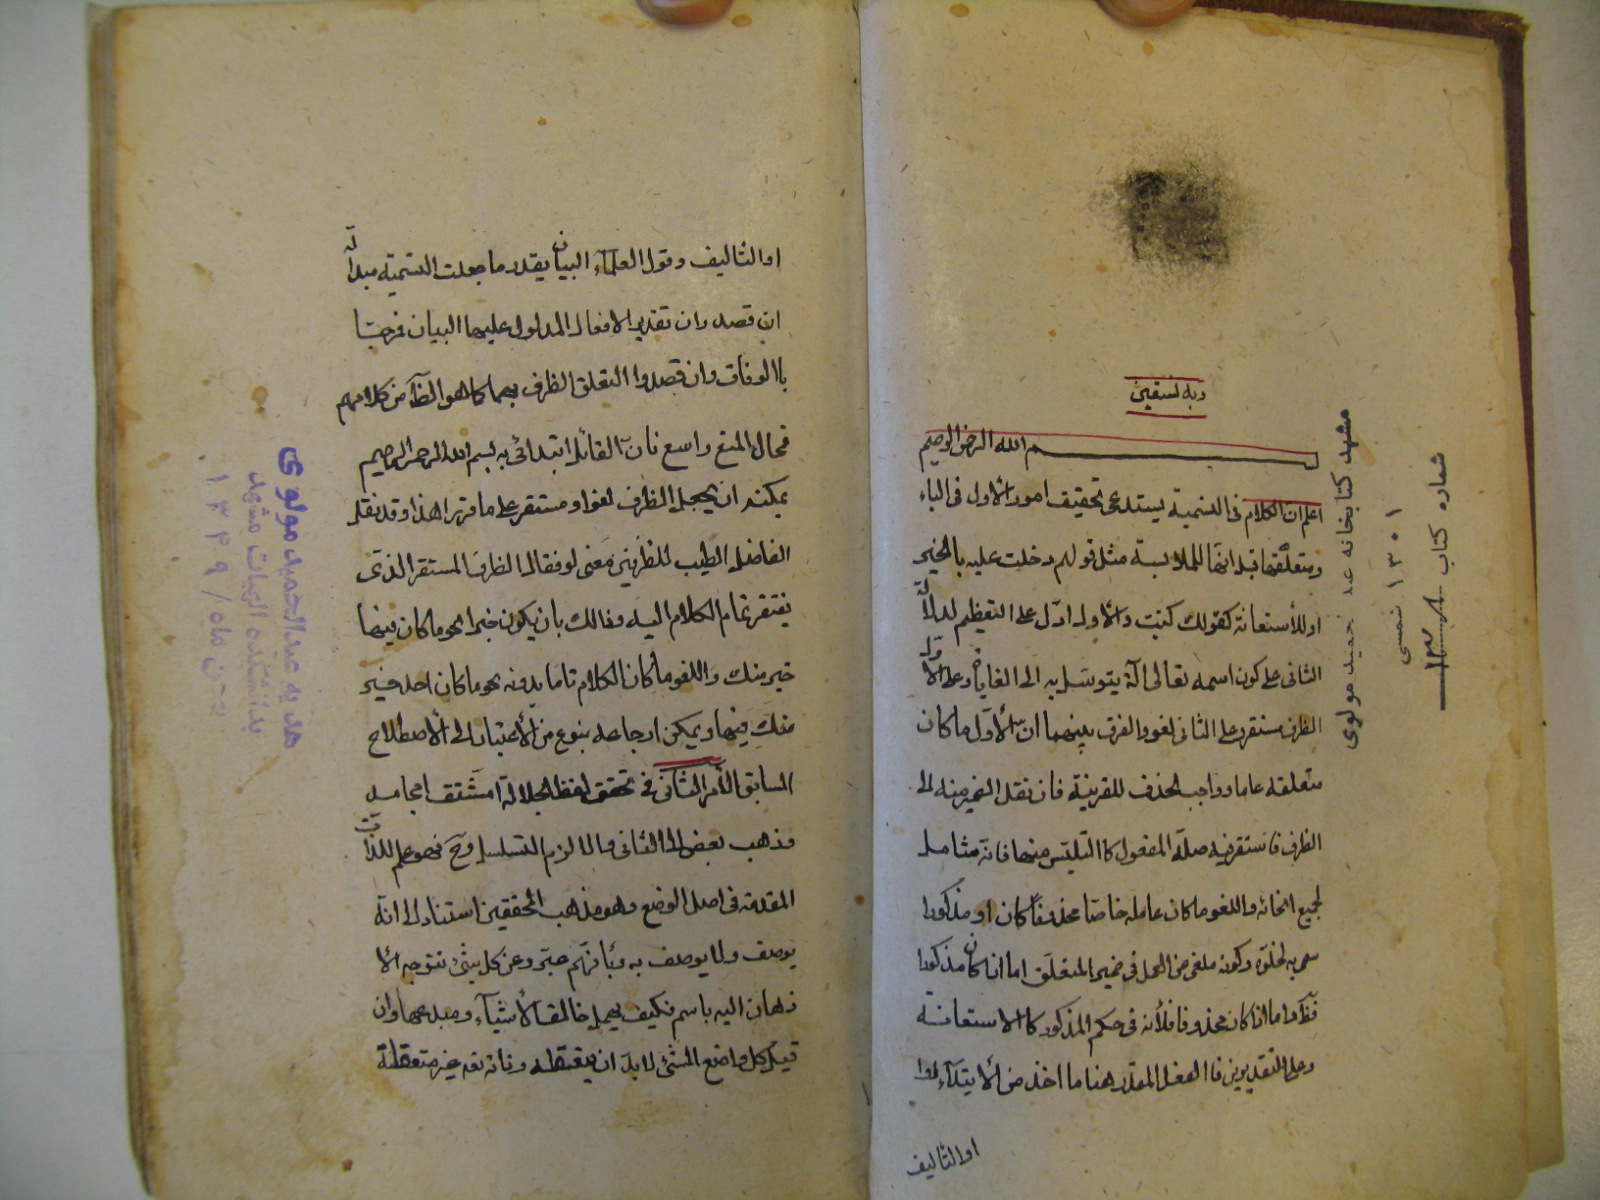 وبه نستعين
بسم الله الرحمن الرحيم
اعلم ان الكلام فى التسمية يستدعى تحقيق امور الاول فى الباء
ومتعلقها قيل انها للملابسة مثل قولهم دخلت عليه بالخير
او للأستعانة كقولك كتبت والاول ادل على التعظيم لدلالة
الثانى على كون اسمه تعالى آلة يتوسل به الى الغاية وعلى الاول
الظرف مستقر وعلى الثانى لغو والفرق بينهما ان الأول ما كان
متعلقه عاما وواجب الحذف للقرينة فان نقل الضمير منه الى
الظرف فاستقر فيه صلة المفعول كالتلبس منها فانه شامل
لجميع انحائه واللغو ما كان عامله خاصا محذوفا كان او مذكورا
سمى به لخلوه وكونه ملغى من العمل فى ضمير المتعلق اما اذا كان مذكورا
فظ واما اذا كان محذوفا فلأنه فى حكم المذكور كالاستعانة
وعلى التقديرين فالفعل المقدر هنا ما اخذ من الأبتدآء
او التأليف
او التاليف وقول العلمآء البيان يقدر ما جعلت التسمية مبدأ له
ان قصد وان تقدير الافعال المدلول عليها البيان فرحبا
بالوفاق وان قصدوا التعلق الظرف بهما كما هو الظ من كلامهم
فمجال المنع واسع فان القائل ابتدائى به بسم الله الرحمن الرحيم
يمكنه ان يجعل الظرف لغوا ومستقر على ما قرر هذا وقد نقل
الفاضل الطيب للظرفين معنى لو فقال الظرف المستقر الذى
يفتقر تمام الكلام اليه وذالك بان يكون خبرا نحو ما كان فيها
خير منك واللغو ما كان الكلام تاما بدونه نحو ما كان احد خير
منك فيها ويمكن ارجاعه بنوع من الأعتبار الى الأصطلاح
السابق الأمر الثانى فى تحقق لفظ الجلالة امشتق ام جامد
وذهب بعض الى الثانى والا لزم التسلسل وح فهو علم للذات
المقدسة فى اصل الوضع وهو مذهب المحققين استنادا الى انه
يوصف ولا يوصف به وبأنهم عبروعن كل شئ تتوجه الأ
ذهان اليه باسم فكيف يهمل خالق الأشيآء ومبدعها وان
قيل كل واضع لشئ لا بد ان يتعقله وذاته تعه غير متعقلة
مشهد كتابخانه عبد الحميد مولوى
١٣٠١ شمسى
شماره كتاب
هديه عبدالحميد مولوى
بدانشكده الهيات مشهد
بهمن ماه / ١٣٤٩